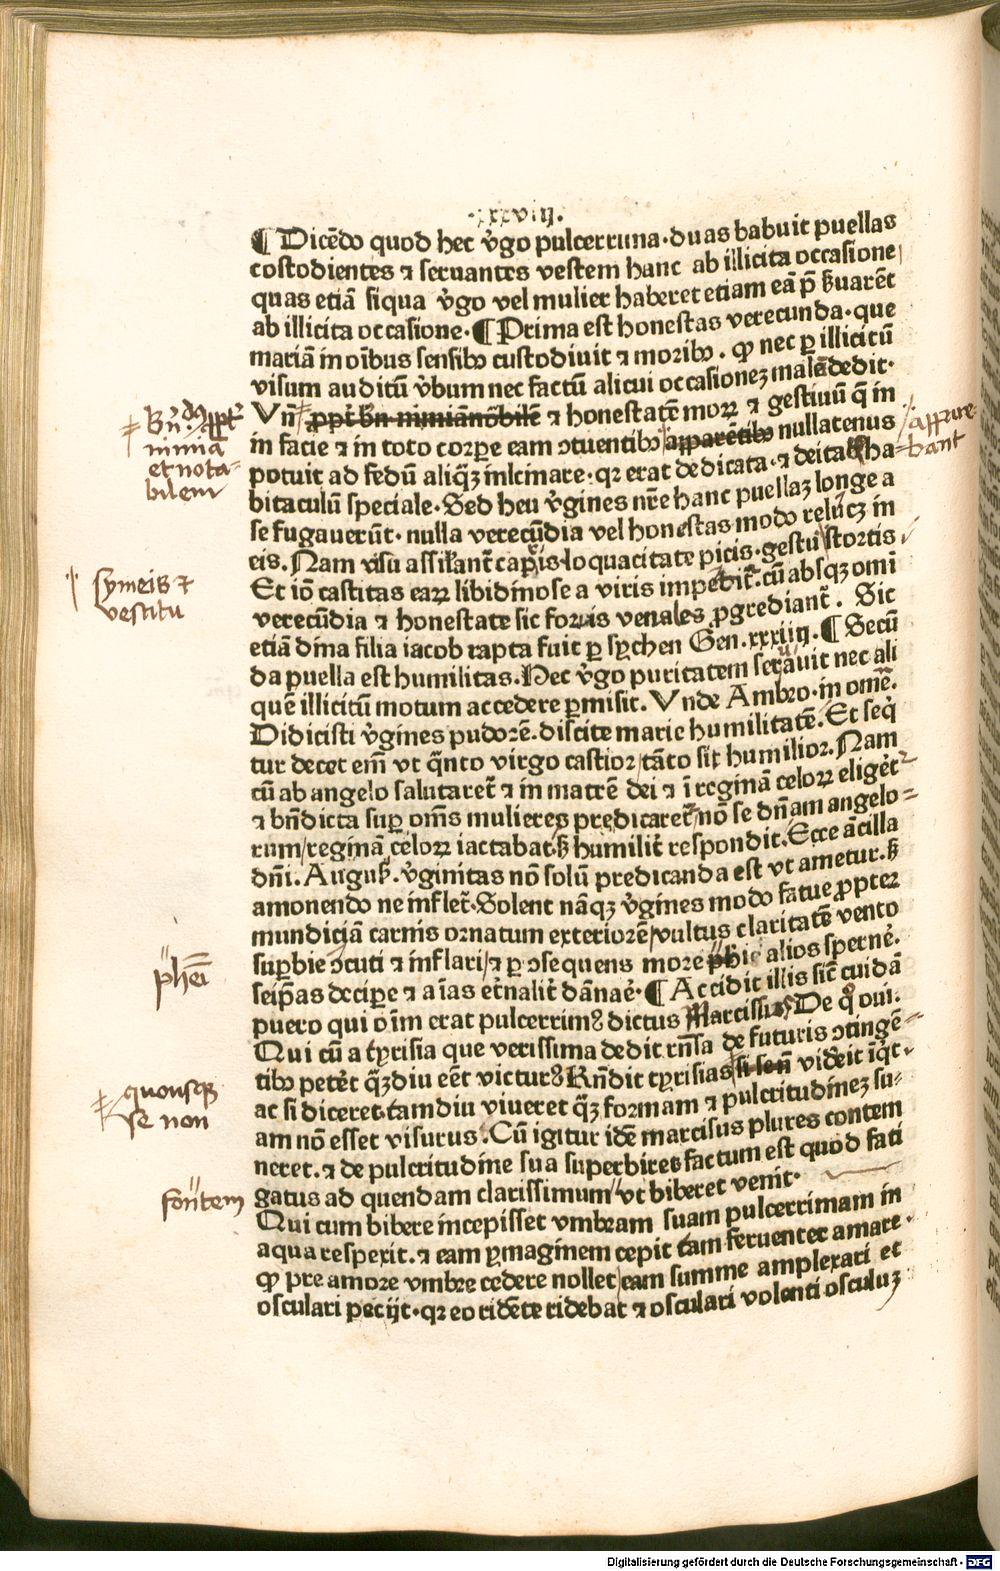 .xxxviij.
¶ Dicēdo quod hec v̄go pulcerrima·duas habuit puellas
costodientes ⁊ seruantes vestem hanc ab illicita occasione
quas etiā siqua v̄go vel mulier haberet etiam eā p̄ ẜuarēt
ab illicita occasione·¶ Prima est honestas verecunda·que
mariā in oībus sensibꝫ custodiuit ⁊ moribꝫ . ꝙ nec ꝑ illicitū
visum auditū v̄bum nec factū alicui occasionez male dedit·
Vn̄ ꝓpt̄ bn̄ nimiā nobilē ⁊ honestatē moꝝ ⁊ gestiuū q̄ in
in facie ⁊ in toto corpꝛe eam ↄtuentibꝫ apparētibꝫ nullatenus
potuit ad fedū aliqꝫ inlcinare·qꝛ erat dedicata·⁊ deitatis ha
bitaculū speciale·Sed heu v̄gines nr̄e hanc puellaꝫ longe a
se fugauerūt·nulla verecūdia vel honestas modo relucꝫ in
eis. Nam visu assil̄ant̄ capris·loquacitate picis·gestu stortis
Et iō castitas eaꝝ libidinose a viris impetit̄·cū absqꝫ omī
verecūdia ⁊ honestate sic foris venales ꝓgrediant̄. Sic
etiā dina filia iacob rapta fuit ꝑ sychen Gen.xxxiiij.¶ Secū
da puella est humilitas.Hec v̄go puritatem seruauit nec ali
quē illicitū motum accedere ꝑmisit. Vnde Ambro·in omē.
Didicisti v̄gines pudorē·discite marie humilitatē. Et seq̄
tur decet em̄ vt q̄nto virgo castior/tāto sit humilior. Nam
cū ab angelo salutaret̄ ⁊ in matrē dei ⁊ ī reginā celoꝝ eliget̄
⁊ bn̄dicta suꝑ om̄s mulieres predicaret̄ nō se dn̄am angelo=
rum/reginā celoꝝ iactabat·ẜ humilit̄ respondit. Ecce ācilla
dn̄i. Augusꝰ. v̄ginitas nō solū predicanda est vt ametur·ẜ
amonendo ne inflet̄·Solent nāqꝫ v̄gines modo fatue ꝓpter
mundiciā carnis ornatum exteriorē/vultus claritatē vento
suꝑbie ↄcuti ⁊ inflari/⁊ ꝑ ↄsequens more alios sperne̛.
seip̄as deciꝑe ⁊ aīas et̄nalit̄ dānae̛·¶ Accidit illis sic̄ cuidā
puero qui oīm erat pulcerrimꝰ dictus Narcissus/ De qͦ oui.
Qui cū a tyrisia que verissima dedit rn̄sa de futuris ↄtingē=
tibꝫ petet̄ qꝫdiu eēt victurꝰ Rn̄dit tyrisias si se n̄ viderit īq̄t
ac si diceret·tamdiu viueret qꝫ formam ⁊ pulcritudinez su=
am nō esset visurus. Cū igitur idē marcisus plures contem
neret·⁊ de pulcritudine sua superbiret factum est quod fati
gatus ad quendam clarissimum vt biberet venit·
Qui cum bibere incepisset vmbram suam pulcerrimam in
aqua respexit·⁊ eam ymaginem cepit tam feruenter amare·
ꝙ pre amore vmbre cedere nollet/eam summe amplexari et
osculari pecijt·qꝛ eo ridēte ridebat ⁊ osculari volenti osculuꝫ
nimiā
et nota=
bilem
appare=
bant
symeis ⁊
vestitu
phei
quousqꝫ
se non
fontem
Digitalisierung gefördert durch die Deutsche Forschungsgemeinschaft - DFG